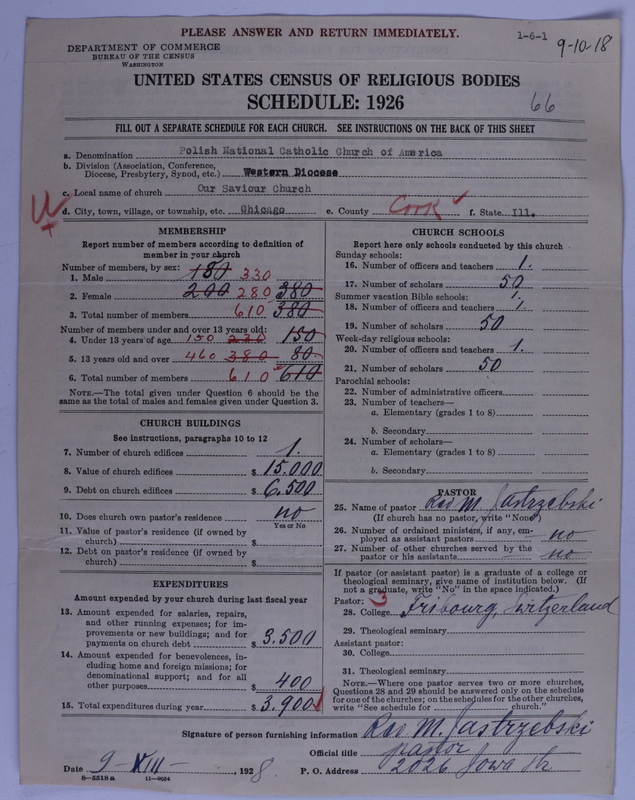 PLEASE ANSWER AND RETURN IMMEDIATELY.
1-6-1
9-10-18
DEPARTMENT OF COMMERCE
BUREAU OF THE CENSUS
WASHINGTON
UNITED STATES CENSUS OF RELIGIOUS BODIES
SCHEDULE: 1926
66
FILL OUT A SEPARATE SCHEDULE FOR EACH CHURCH. SEE INSTRUCTIONS ON THE BACK OF THIS SHEET
a. Denomination Polish National Catholic Church of America
b. Division (Association, Conference,
Diocese, Presbytery, Synod, etc.) Western Diocese
c. Local name of church Our Saviour Church
d. City, town, village, or township, etc. Chicago e. County Cook f. State Ill.
MEMBERSHIP
Report number of members according to definition of
member in your church
Number of members, by sex:
1. Male 180 330
2. Female 200 280 380
3. Total number of members 610 380
Number of members under and over 13 years old:
4. Under 13 years of age 150 230 150
5. 13 years old and over 460 380 80
6. Total number of members 610 610
NOTE.—The total given under Question 6 should be
same as the total of males and females given under Question 3.
CHURCH BUILDINGS
See instructions, paragraphs 10 to 12
7. Number of church edifices 1.
8. Value of church edifices $ 15.000
9. Debt on church edifices $ 6.500
10. Does church own pastor's residence no
Yes or No
11. Value of pastor's residence (if owned by
church) $
12. Debt on pastor's residence (if owned by
church) $
EXPENDITURES
Amount expended by your church during last fiscal year
13. Amount expended for salaries, repairs,
and other running expenses; for im-
provements or new buildings; and for
payments on church debt $ 3.500
14. Amount expended for benevolences, in-
cluding home and foreign missions; for
denominational support; and for all
other purposes $ 400
15. Total expenditures during year $ 3.900
CHURCH SCHOOLS
Report here only schools conducted by this church
Sunday schools:
16. Number of officers and teachers 1.
17. Number of scholars 50
Summer vacation Bible schools:
18. Number of officers and teachers 1.
19. Number of scholars 50
Week-day religious schools:
20. Number of officers and teachers 1.
21. Number of scholars 50
Parochial schools:
22. Number of administrative officers
23. Number of teachers—
a. Elementary (grades 1 to 8)
b. Secondary
24. Number of scholars—
a. Elementary (grades 1 to 8)
b. Secondary
PASTOR
25. Name of pastor M. Jastrzebski
(If church has no pastor, write "None")
26. Number of ordained ministers, if any, em-
ployed as assistant pastors no
27. Number of other churches served by the
pastor or his assistants no
If pastor (or assistant pastor) is a graduate of a college or
theological seminary, give name of institution below. (If
not a graduate, write "No" in the space indicated.)
Pastor: 3
28. College Fribourg, Switzerland
29. Theological seminary
Assistant pastor:
30. College
31. Theological seminary
NOTE.—Where one pastor serves two or more churches,
Questions 28 and 29 should be answered only on the schedule
for one of the churches; on the schedules for the other churches,
write "See schedule for church."
Signature of person furnishing information M. Jastrzebski
Official title pastor
Date 9-XIII, 1928 P. O. Address 2026 Iowa St
8—5518a 11—9054